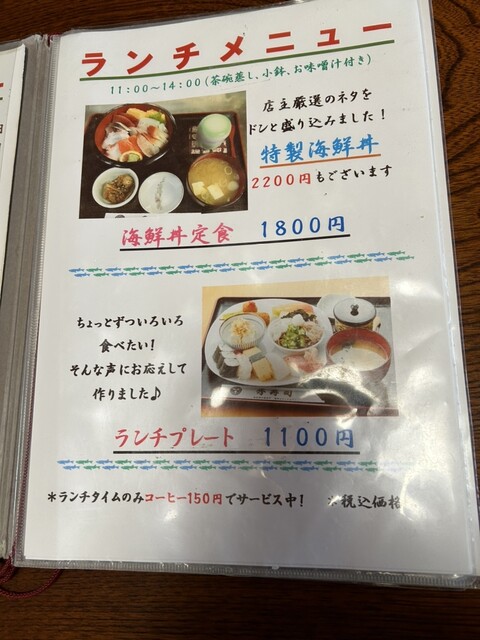 ランチメニュー
11:00～14:00(茶碗蒸し、小鉢、お味噌汁付き)
店主厳選のネタを
ドンと盛り込みました！
特製海鮮丼
2200円もございます
海鮮丼定食 1800円
ちょっとずついろいろ
食べたい！
そんな声にお応えして
作りました♪
ランチプレート 1100円
＊ランチタイムのみコーヒー150円でサービス中！ ＊税込価格